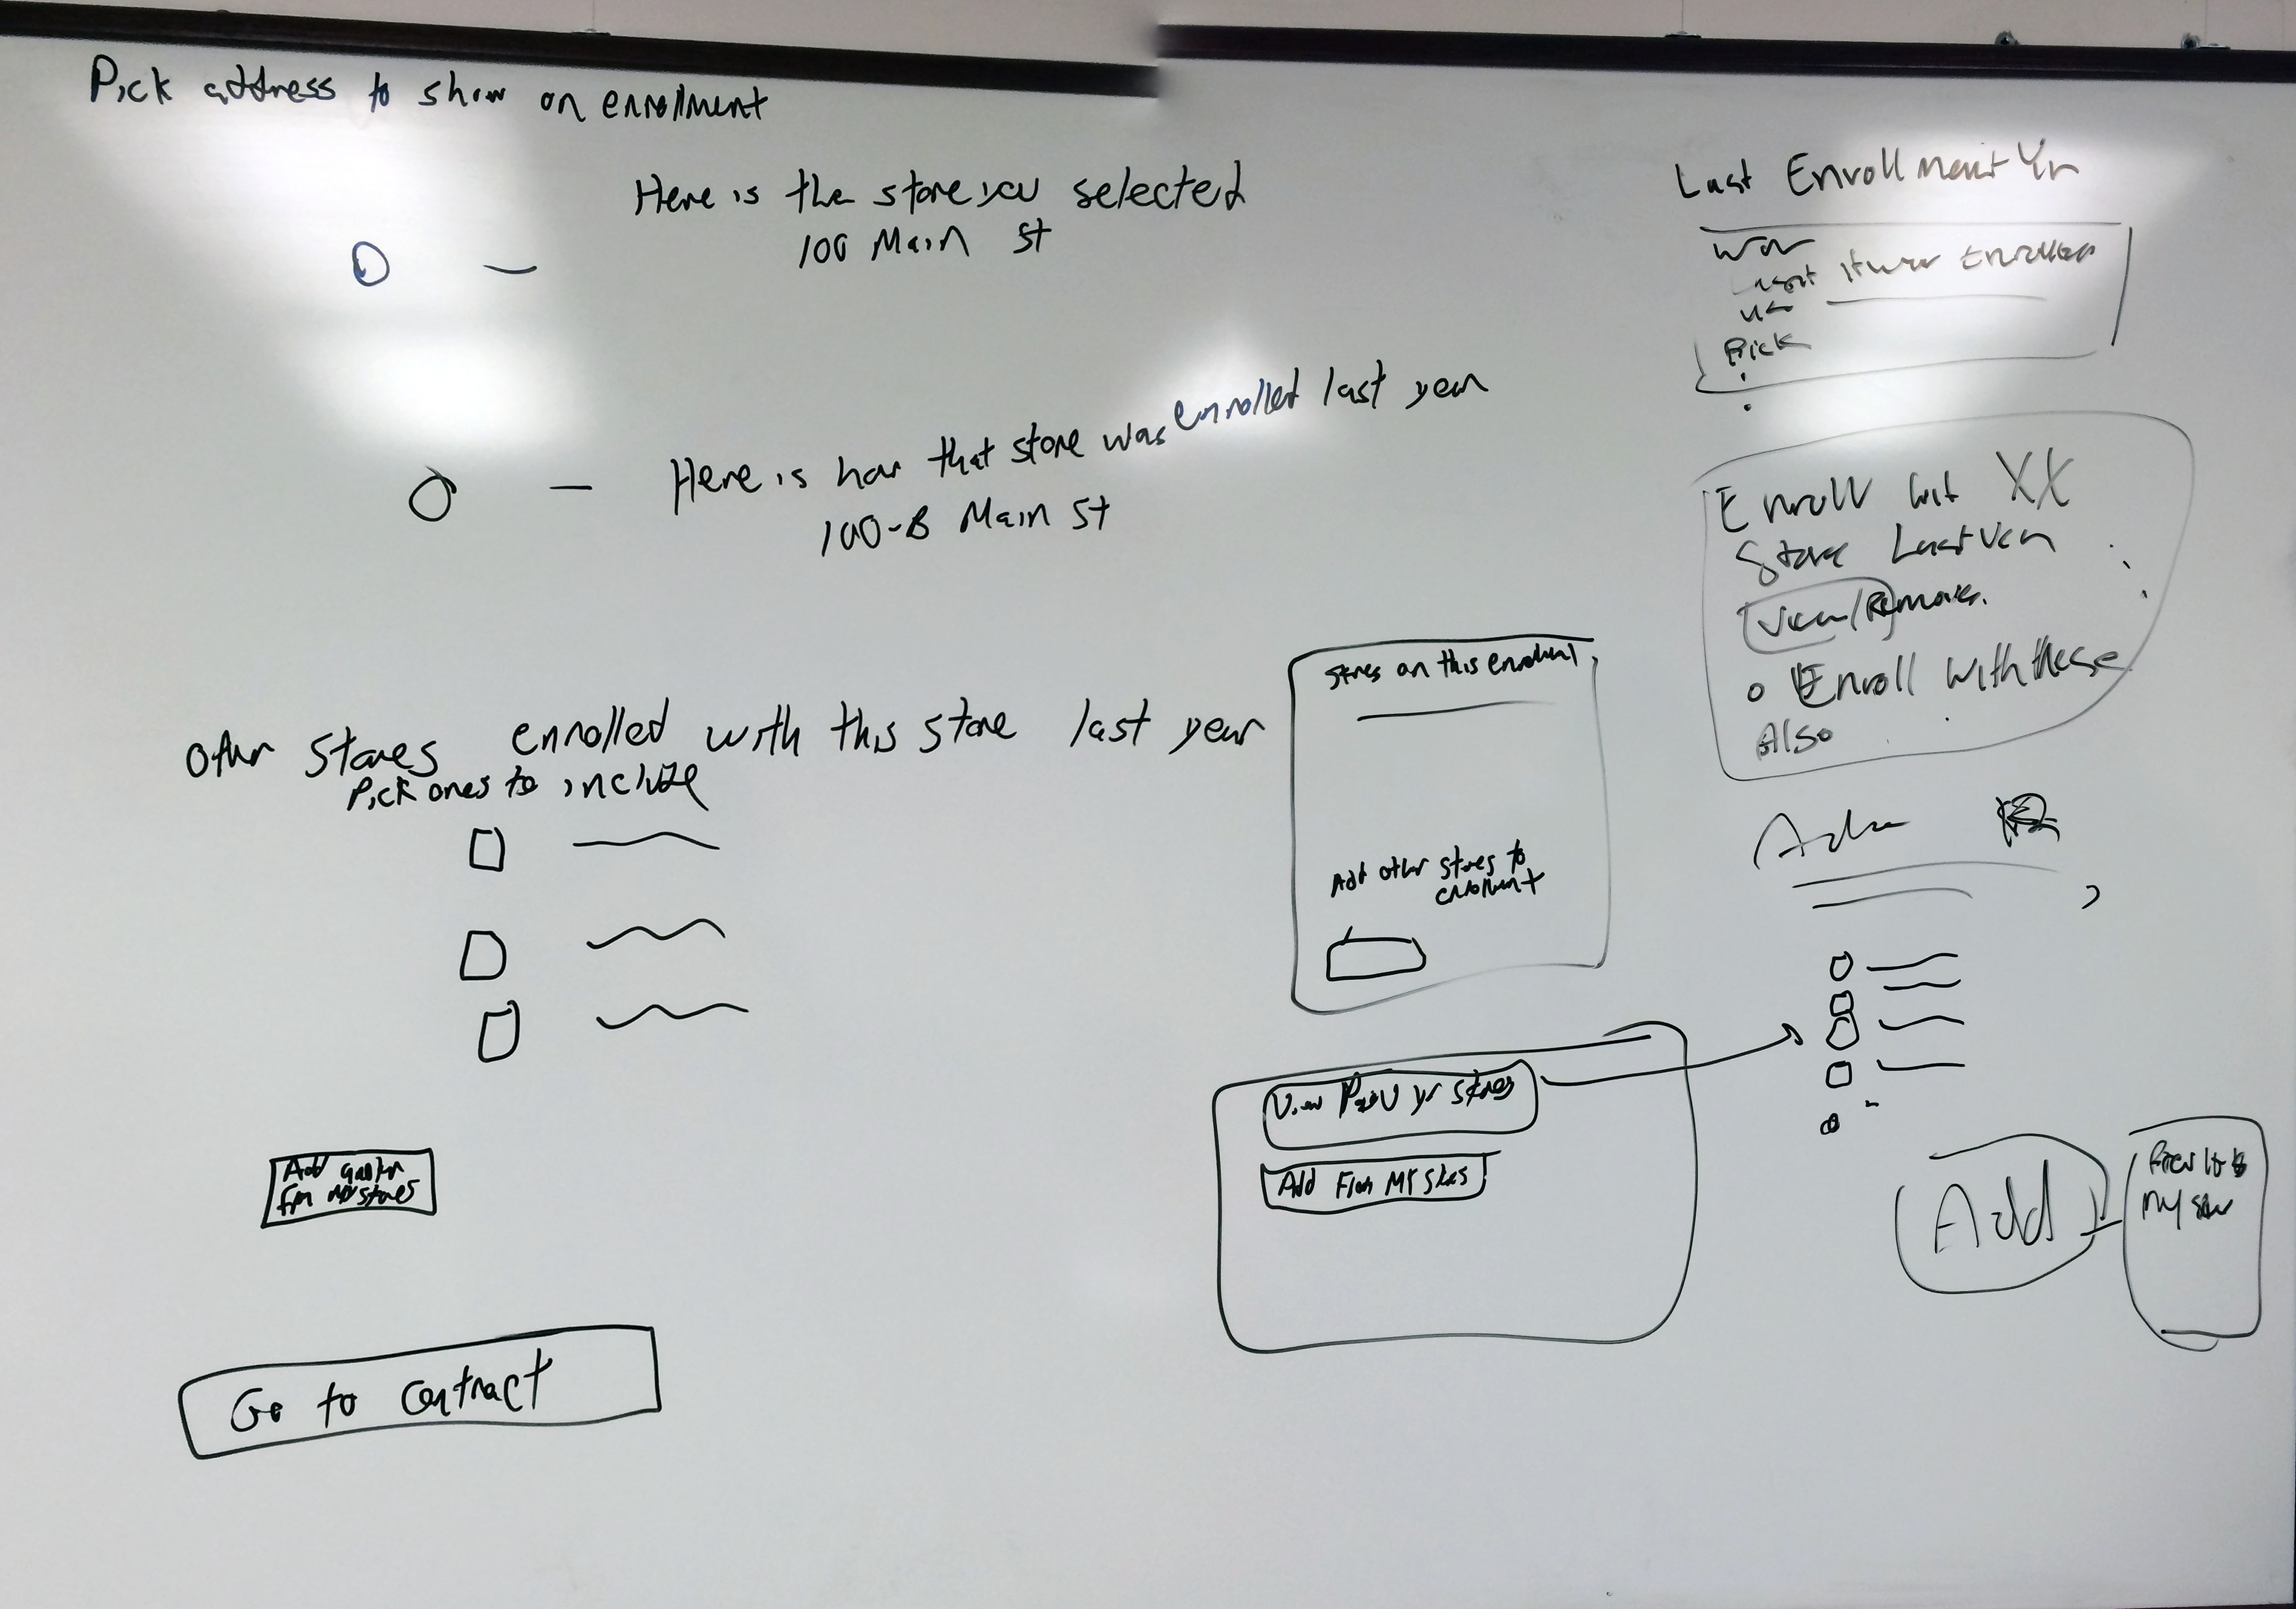 Pick address to show on enrollment
Here is the store you selected
100 Main St
Here is how that store was enrolled last year
100-B Main St
Other Stores enrolled with this store last year
Pick ones to include
Add
stores
Go to contract
Stores on this enrollment
Add other stores to
enrollment
View Prev yr stores
Add From My Stores
Last Enrollment Yr
it was Enrolled
Pick
Enroll wit XX
Store Last Year
View/Remove
Enroll with these
Also
Add
My